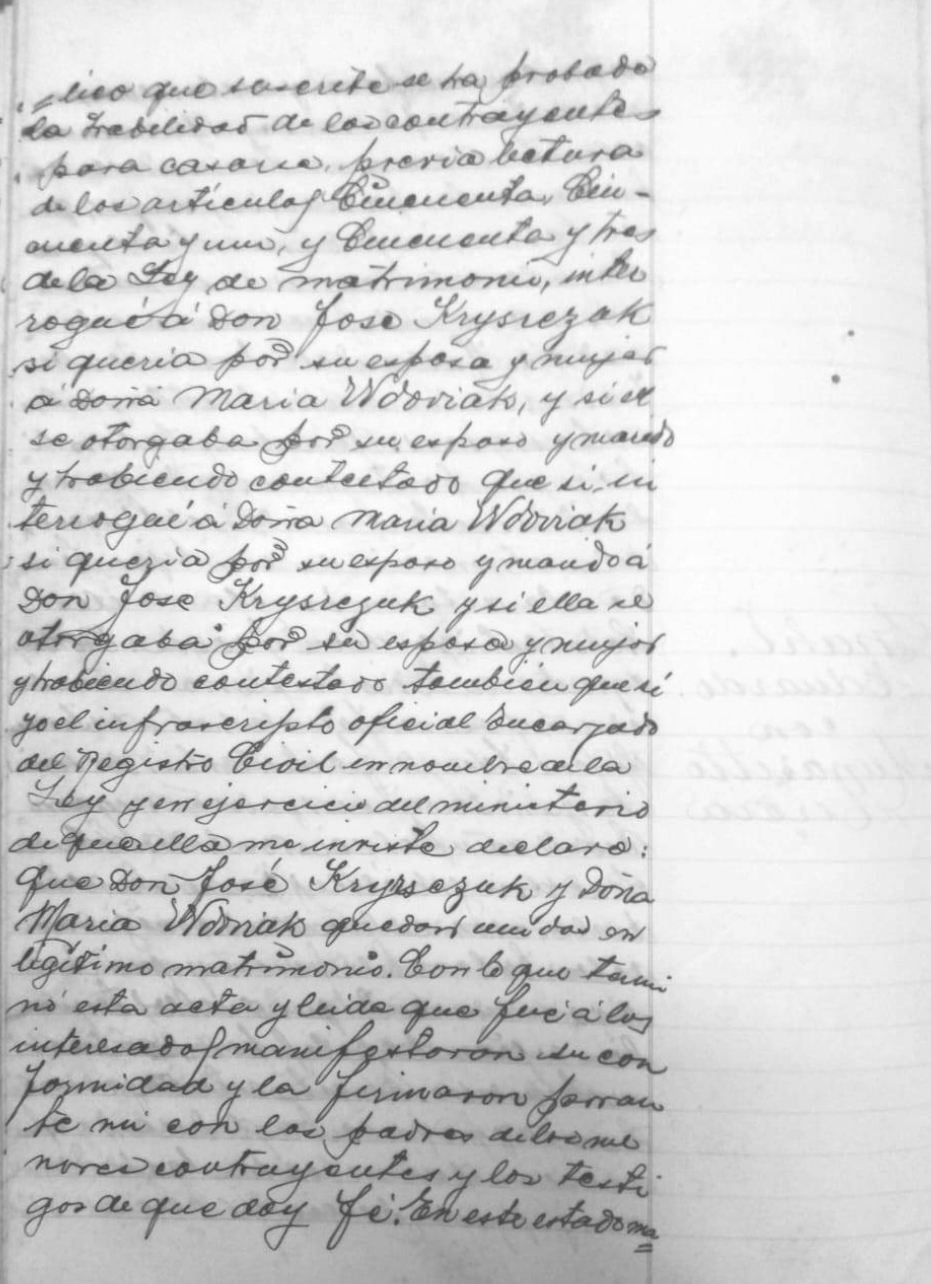 =lico que suscribe se ha probado
la habilidad de los contrayentes
para casarse, previa lectura
de los articulos Cincuenta, Cin-
cuenta y un, y Cincuenta y tres
de la Ley de matrimonio, inter
rogué á Don Jose Krysrczak
si queria por su esposa y mujer
á Doña Maria Wdoviak, y si el
se otorgaba por su esposo y marido
y habiendo contestado que si, in
terrogué á Doña Maria Wdoviak
si queria por su esposo y marido á
Don Jose Krysrczuk y si ella se
otorgaba por su esposa y mujer
y habiendo contestado tambien que si
yo el infrascripto oficial Encargado
del Registro Civil en nombre de la
Ley y en ejercicio del ministerio
de que ella me inviste declaro:
que Don José Kryrsczuk y Doña
Maria Wdoviak quedan unidos en
legítimo matrimonio. Con lo que termi
nó esta acta y leida que fué á los
interesados manifestaron su con
formidad y la firmaron por an
te mi con los padres de los me
nores contrayentes y los testi
gos de que doy fé. En este estado ma=